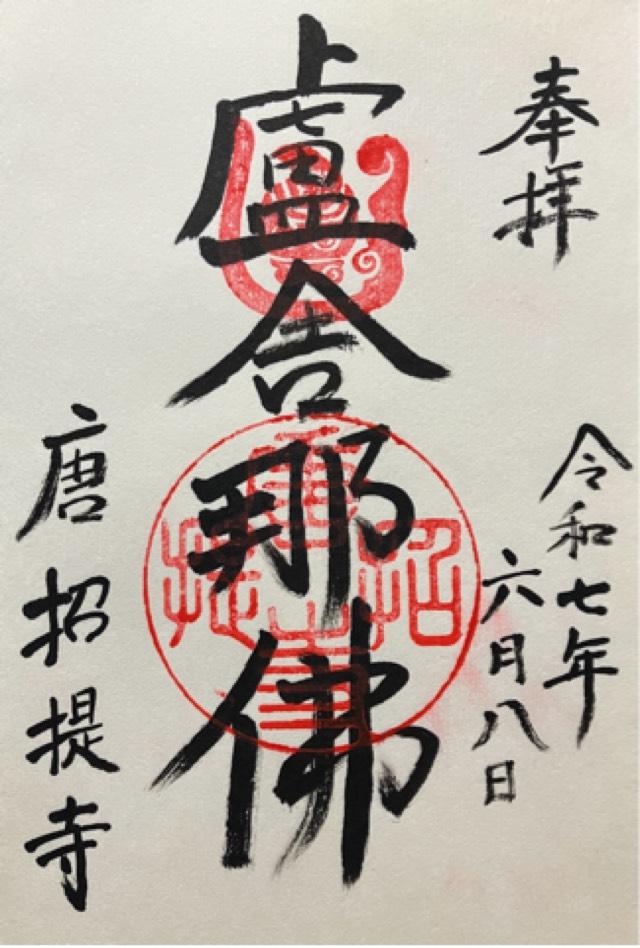 奉拝
令和七年
六月八日
盧舎那佛
唐招提寺
唐招提寺